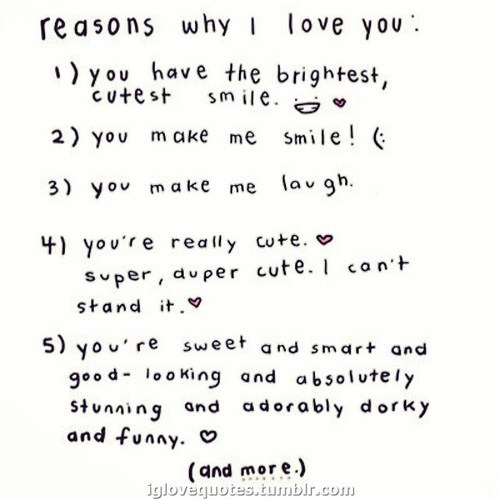 reasons why I love you:
1) you have the brightest,
cutest smile.
2) you make me smile! (:
3) you make me laugh.
4) you're really cute. ♥
super, duper cute. I can't
stand it. ♥
5) you're sweet and smart and
good-looking and absolutely
stunning and adorably dorky
and funny. ♡
(and more.)
iglovequotes.tumblr.com